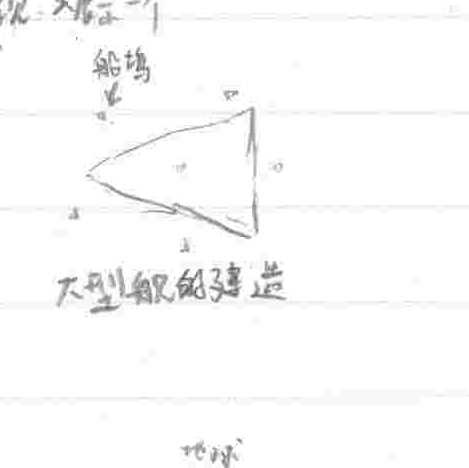 船坞
大型舰的建造
地球